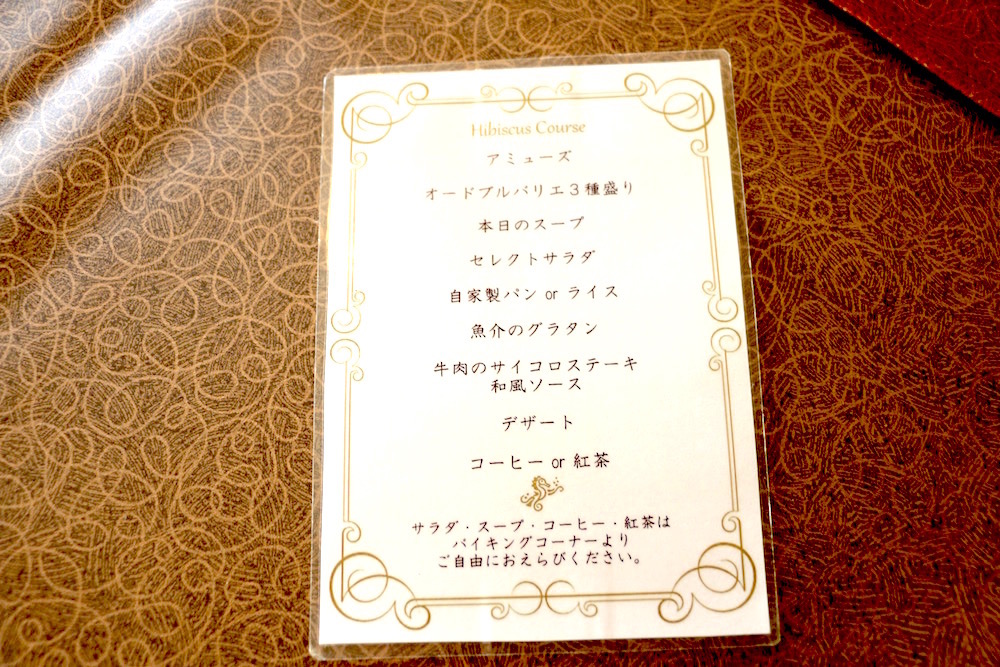 Hibiscus Course
アミューズ
オードブルバリエ3種盛り
本日のスープ
セレクトサラダ
自家製パン or ライス
魚介のグラタン
牛肉のサイコロステーキ
和風ソース
デザート
コーヒー or 紅茶
サラダ・スープ・コーヒー・紅茶は
バイキングコーナーより
ご自由におえらびください。